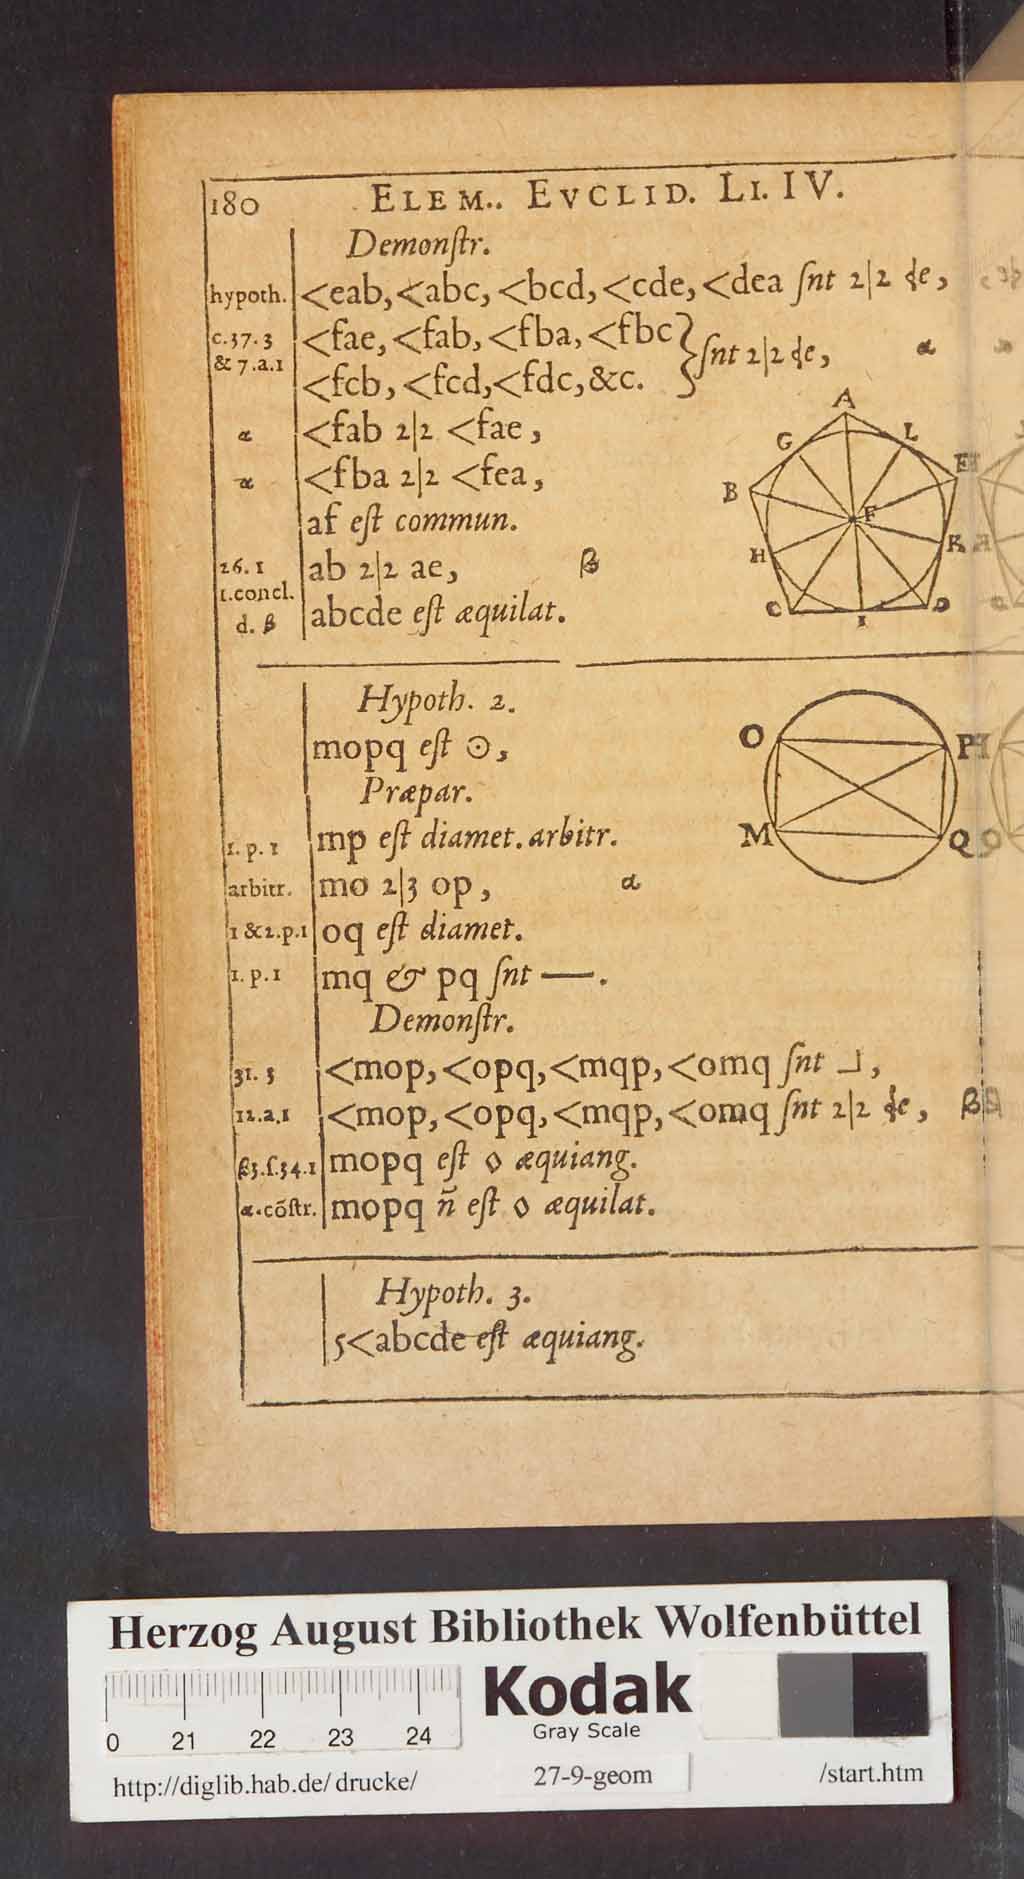 180 ELEM.. EVCLID. LI. IV.
Demonſtr.
hypoth. <eab, <abc, <bcd, <cde, <dea ſnt 2|2 ,
c.37.3 <fae, <fab, <fba, <fbc
& 7.a.1 } ſnt 2|2 , α
<fcb, <fcd, <fdc, &c.
α <fab 2|2 <fae,
α <fba 2|2 <fea,
af eſt commun.
26.1 ab 2|2 ae, β
1.concl.
d. β abcde eſt æquilat.
A
G L
B E
F
H K
C D
I
Hypoth. 2.
mopq eſt ☉,
Præpar.
1. p. 1 mp eſt diamet. arbitr.
arbitr. mo 2|3 op, α
1 & 2.p.1 oq eſt diamet.
1. p. 1 mq & pq ſnt —.
O P
M Q
Demonſtr.
31. 3 <mop, <opq, <mqp, <omq ſnt ⅃,
12.a.1 <mop, <opq, <mqp, <omq ſnt 2|2 , β
β3.ſ.34.1 mopq eſt ◊ æquiang.
α.cõſtr. mopq ñ eſt ◊ æquilat.
Hypoth. 3.
5<abcde eſt æquiang.
Herzog August Bibliothek Wolfenbüttel
0 21 22 23 24
Kodak
Gray Scale
http://diglib.hab.de/drucke/ 27-9-geom /start.htm